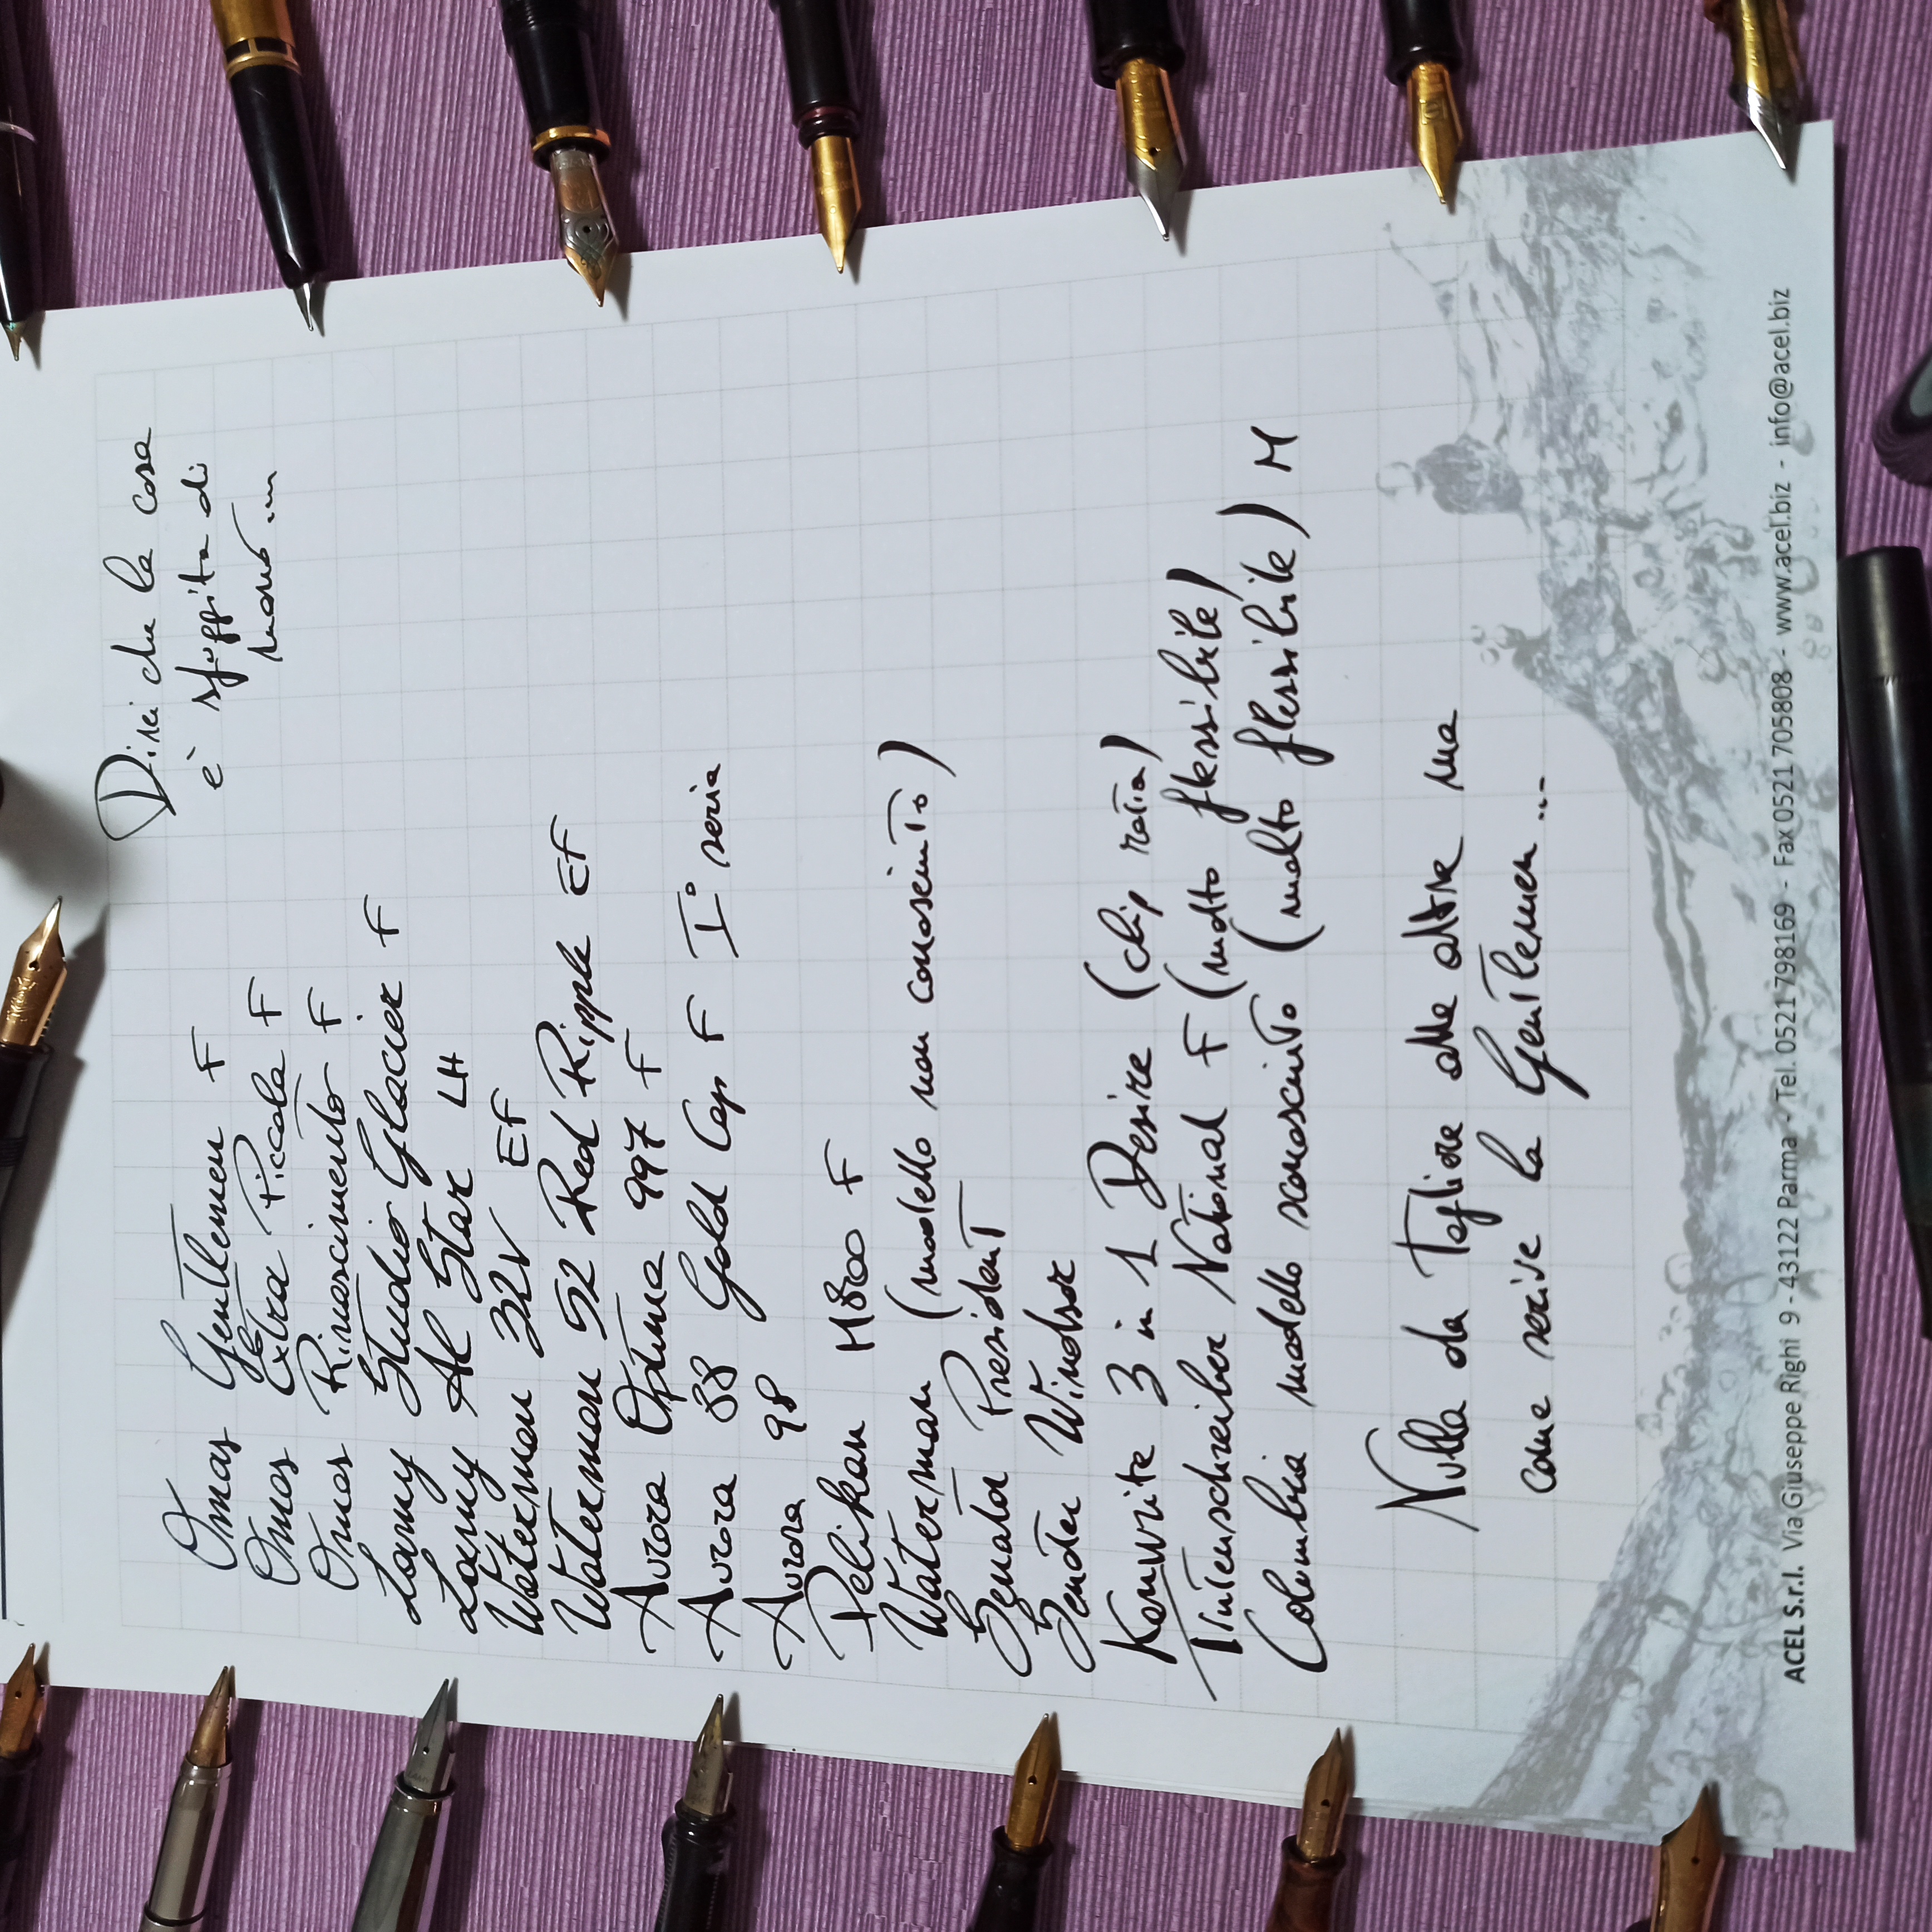 Direi che la cosa
è sfuggita di
mano...
Omas Gentlemen F
Omas Extra Piccola F
Omas Rinascimento F
Lamy Studio Glacier F
Lamy Al Star LH
Waterman 32V EF
Waterman 52 Red Ripple EF
Aurora Optima 997 F
Aurora 88 Gold Cap F I° serie
Aurora 98
Pelikan M800 F
Waterman (modello non conosciuto)
Senator President
Senator Windsor
Kanwrite 3 in 1 Desire (clip rotta)
Tintenschreiber National F (molto flessibile)
Columbia modello sconosciuto (molto flessibile) M
Nulla da togliere alle altre ma
come scrive la Gentlemen...
ACEL S.r.l. Via Giuseppe Righi 9 - 43122 Parma - Tel. 0521 798169 - Fax 0521 705808 - www.acel.biz - info@acel.biz